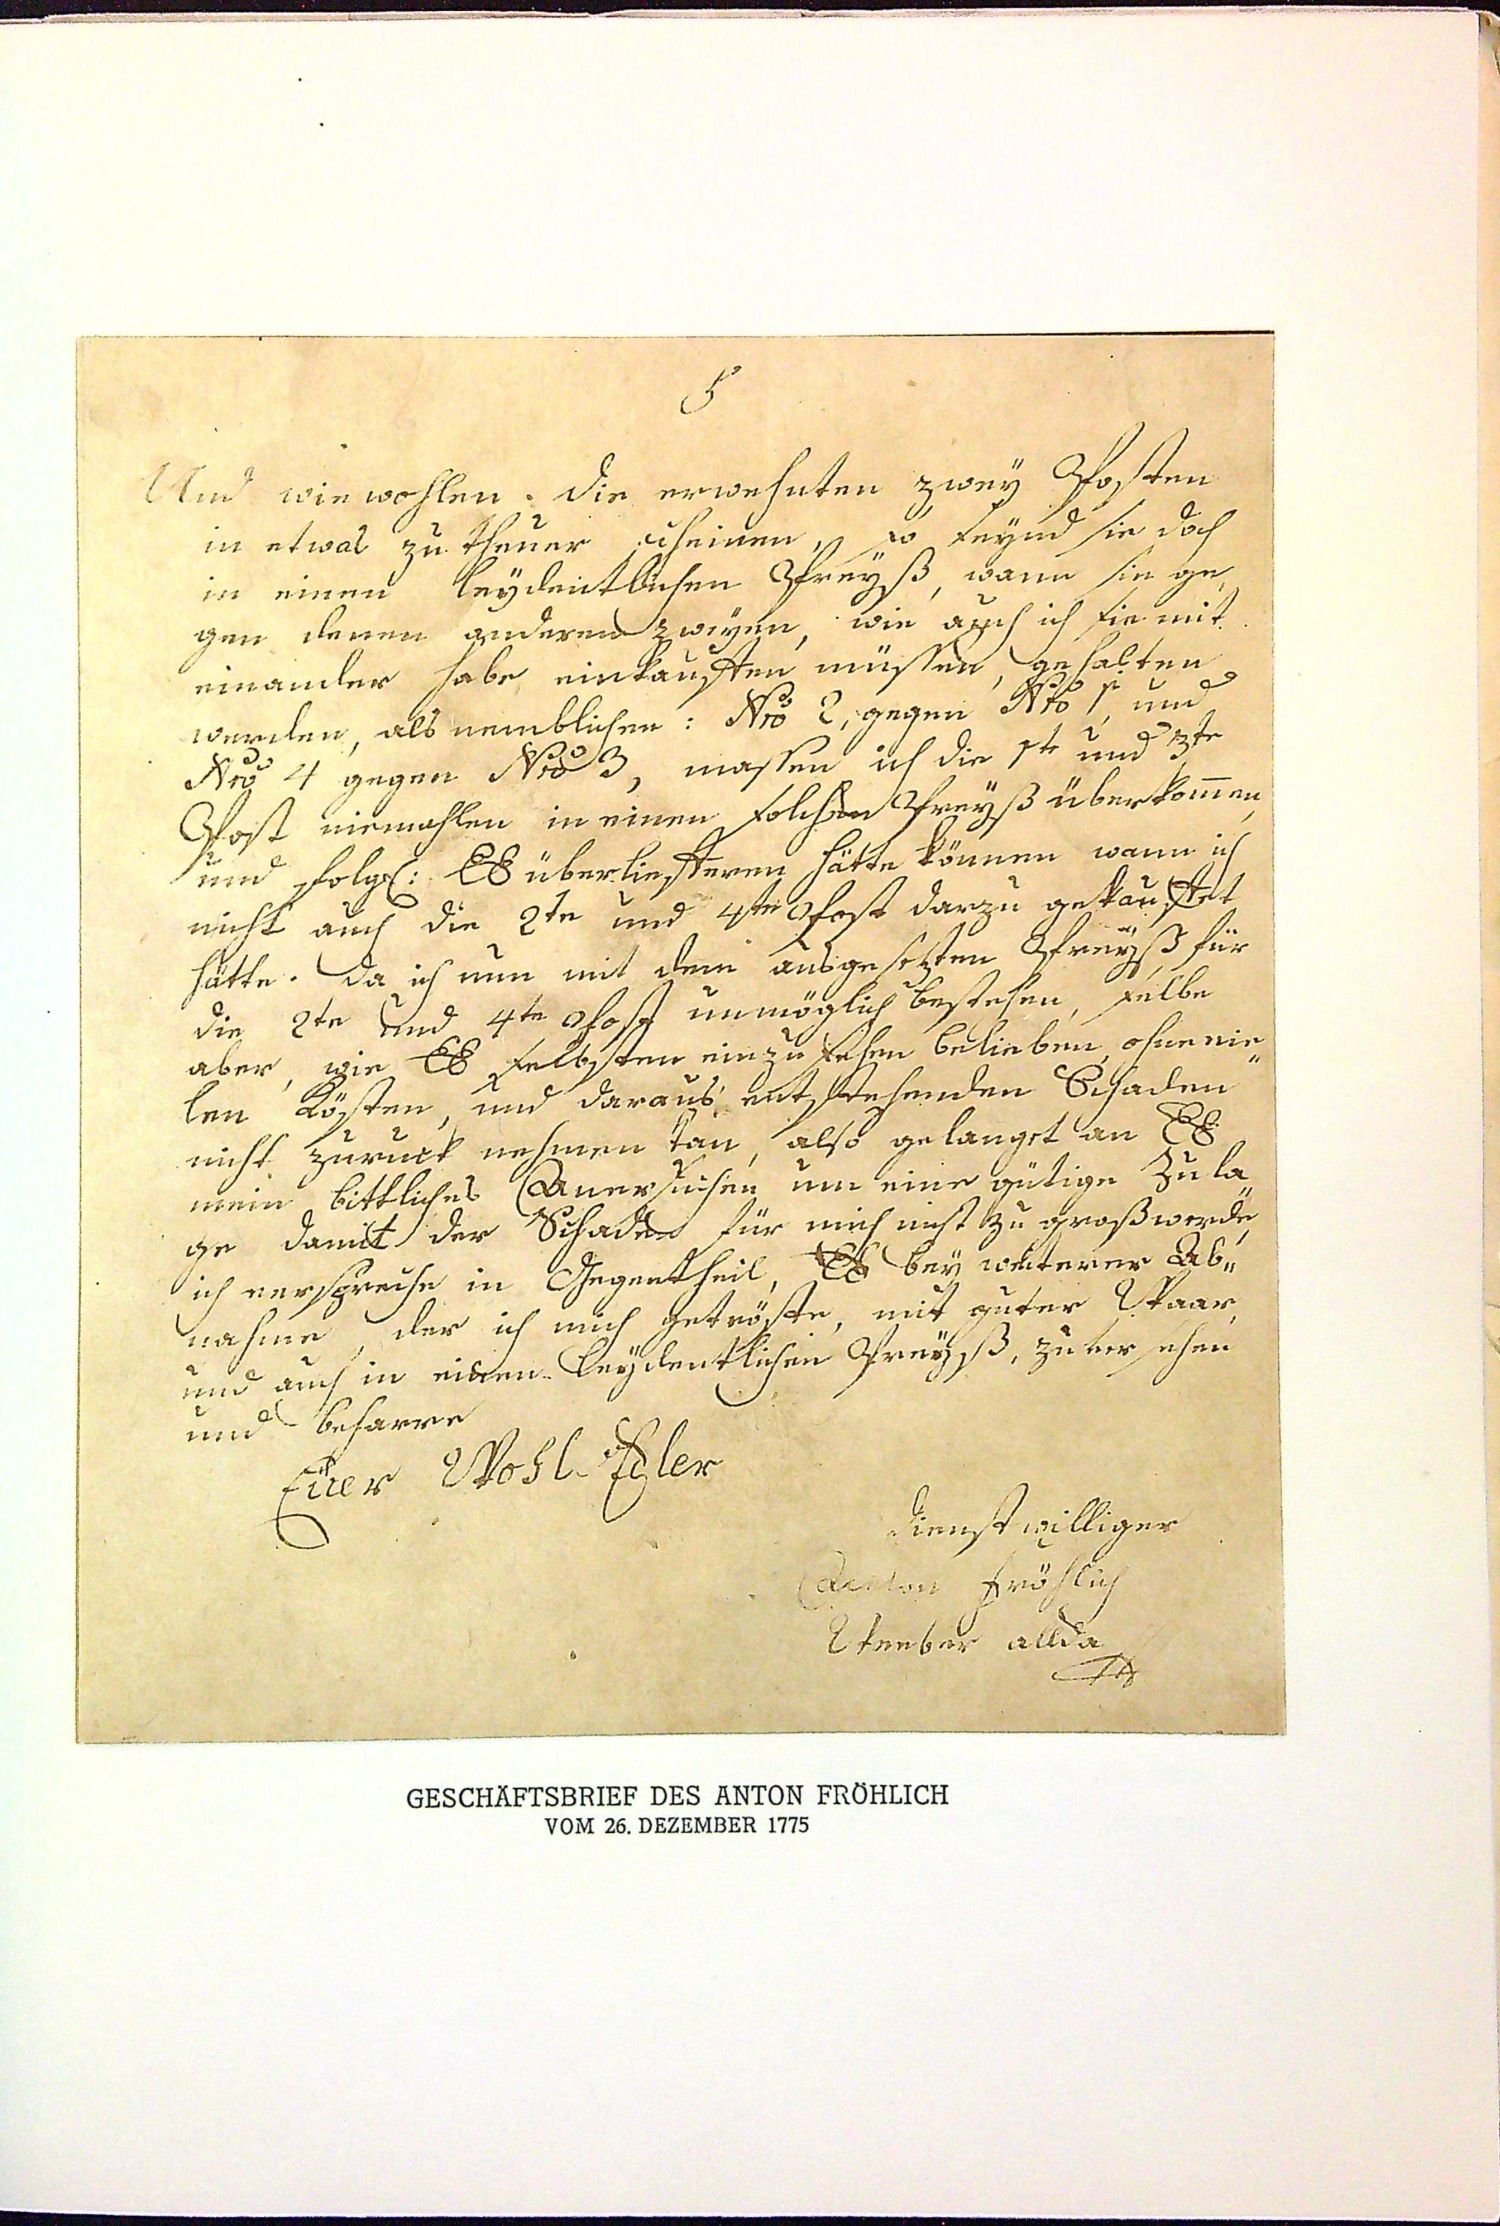 5
Und wiewohlen die erwehnten zwey Posten
in etwas zu theuer scheinen, so seynd sie doch
in einen leydentlichen Preyß, wann sie ge
gen denen anderen zweyen, wie auch ich sie mit
einander habe einkauffen müssen, gehalten
werden, als nemblichen: Nro 2, gegen Nro 1, und
Nro 4 gegen Nro 3, massen ich die 1te und 3te
Post niemahlen in einen solchen Preyß überkom̅en,
und folgl: EE überliefferen hätte können wann ich
nicht auch die 2te und 4te Post darzu gekauffet
hätte. Da ich nun mit dem ausgesetzten Preyß für
die 2te und 4te Post unmöglich bestehen, selbe
aber, wie EE selbsten einzusehen belieben, ohne vie„
len Kösten, und daraus entstehenden Schaden
nicht zuruck nehmen kan, also gelanget an EE
mein bittliches Anersuchen um eine gütige Zula
ge damit der Schaden für mich nicht zu groß werde,
ich verspreche in Gegentheil, EE bey weiterer Ab„
nahme, der ich mich getröste, mit guter Waar,
und auch in einen leydentlichen Preyß, zu versehen
und beharre
Eüer Wohl Edler
dienstwilliger
Anton Fröhlich
Weeber allda
GESCHÄFTSBRIEF DES ANTON FRÖHLICH
VOM 26. DEZEMBER 1775